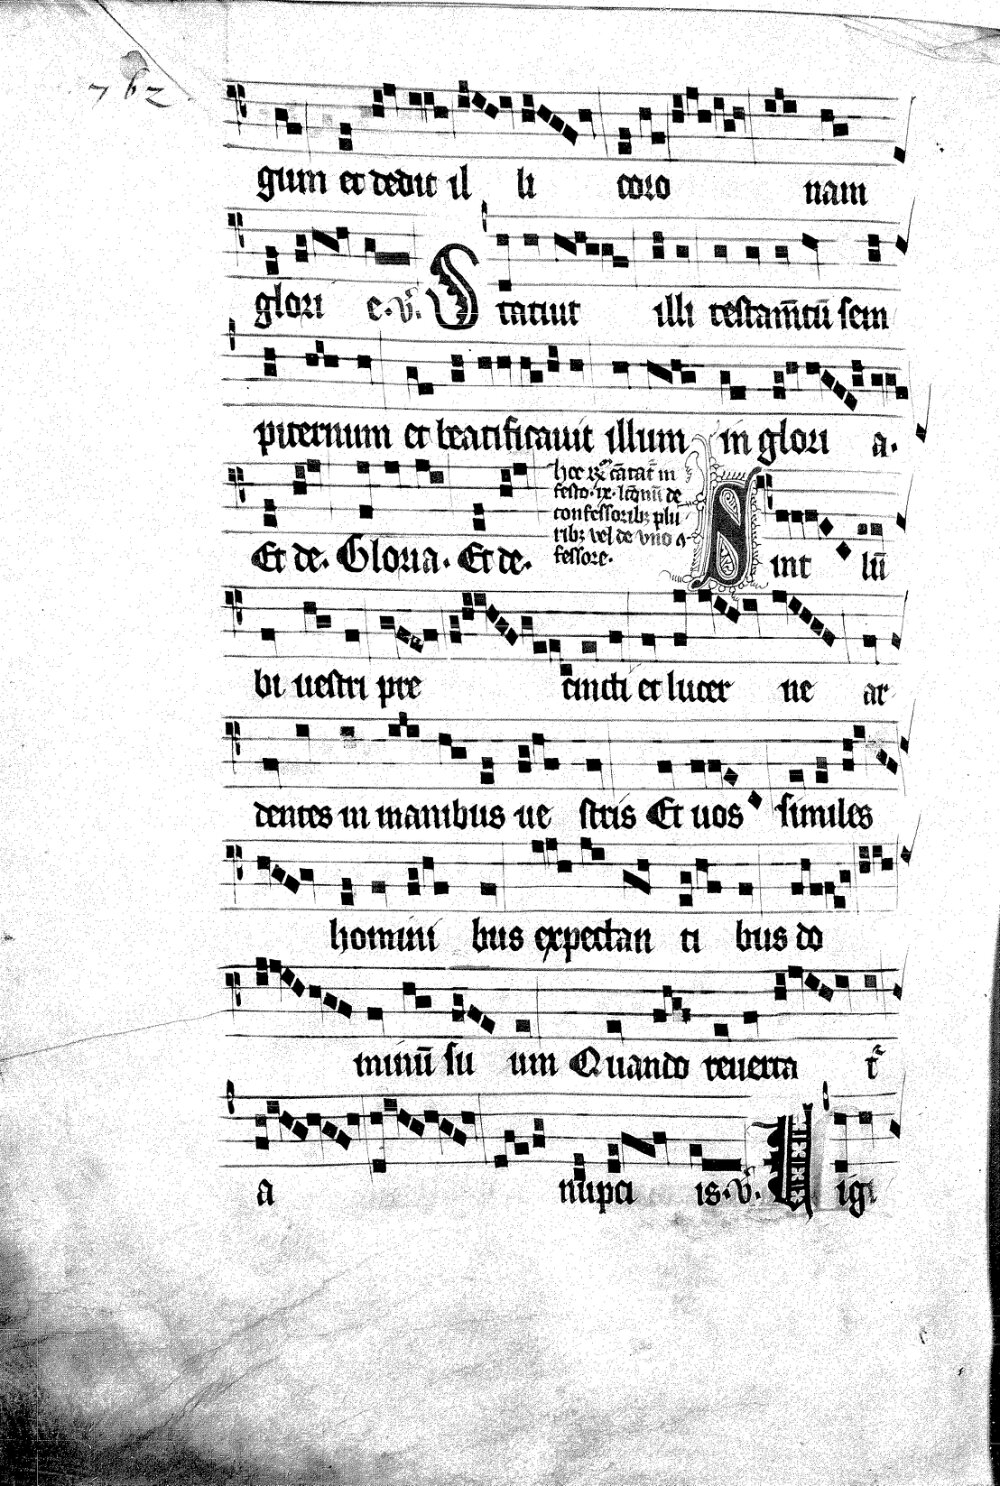 762
gium et dedit il li coro nam
glori e. v̄. Statuit illi testam̄tū sem
piternum et beatificauit illum in glori a.
Et de. Gloria. Et de.
hec r̄. cātat̄ in
festo. ix. lc̄onū de
confessoribꝫ plu
ribꝫ vel de vno
fessore.
Sint lū
bi uestri pre cincti et lucer ne ar
dentes in manibus ue stris Et uos similes
homini bus expectan ti bus do
minū su um Quando reuerta t᷑
a nupci is. v̄. Uigi